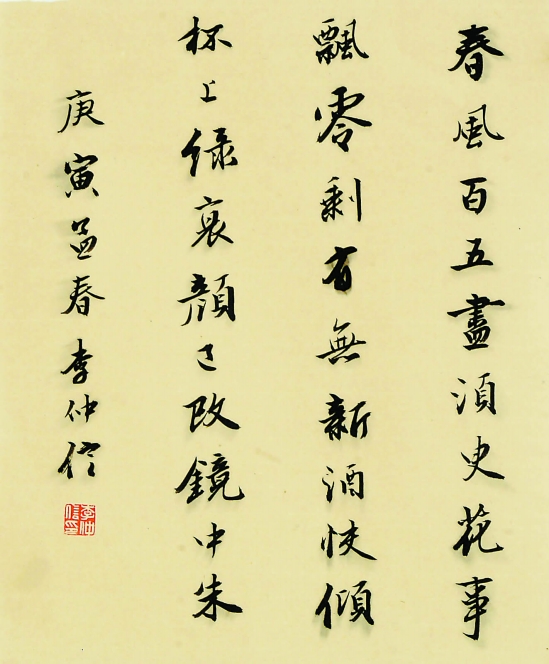 春風百五盡須臾花事
飄零剩有無新酒快傾
杯上綠衰顏已改鏡中朱
庚寅孟春李仲信
李仲信印